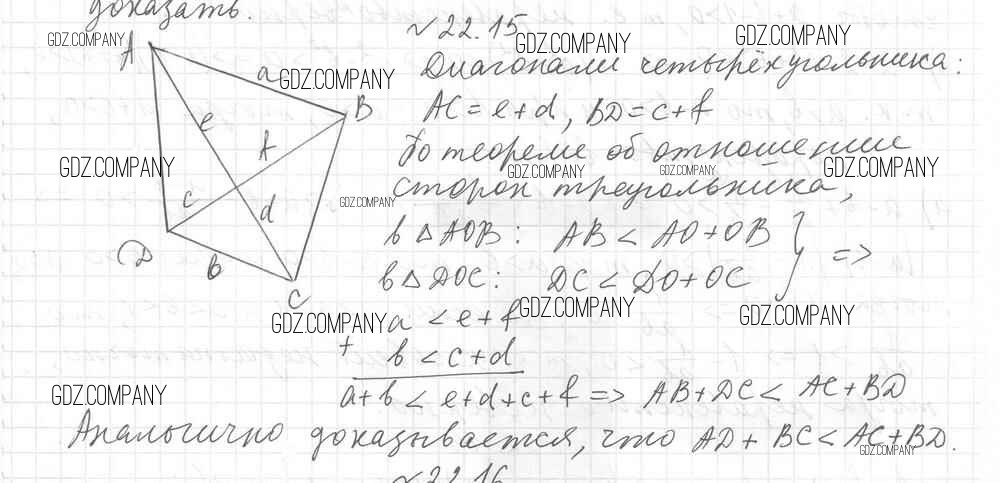 доказать.
№22.15
Диагонали четырёхугольника:
AC = e+d, BD = c+f
По теореме об отношении
сторон треугольника,
в △AOB: AB < AO+OB
в △DOC: DC < DO+OC } =>
a < e+f
+ b < c+d
a+b < e+d+c+f => AB+DC < AC+BD
Аналогично доказывается, что AD+BC < AC+BD.
№22.16
A
a
B
e
f
c
d
D
b
C
GDZ.COMPANY
GDZ.COMPANY
GDZ.COMPANY
GDZ.COMPANY
GDZ.COMPANY
GDZ.COMPANY
GDZ.COMPANY
GDZ.COMPANY
GDZ.COMPANY
GDZ.COMPANY
GDZ.COMPANY
GDZ.COMPANY
GDZ.COMPANY
GDZ.COMPANY